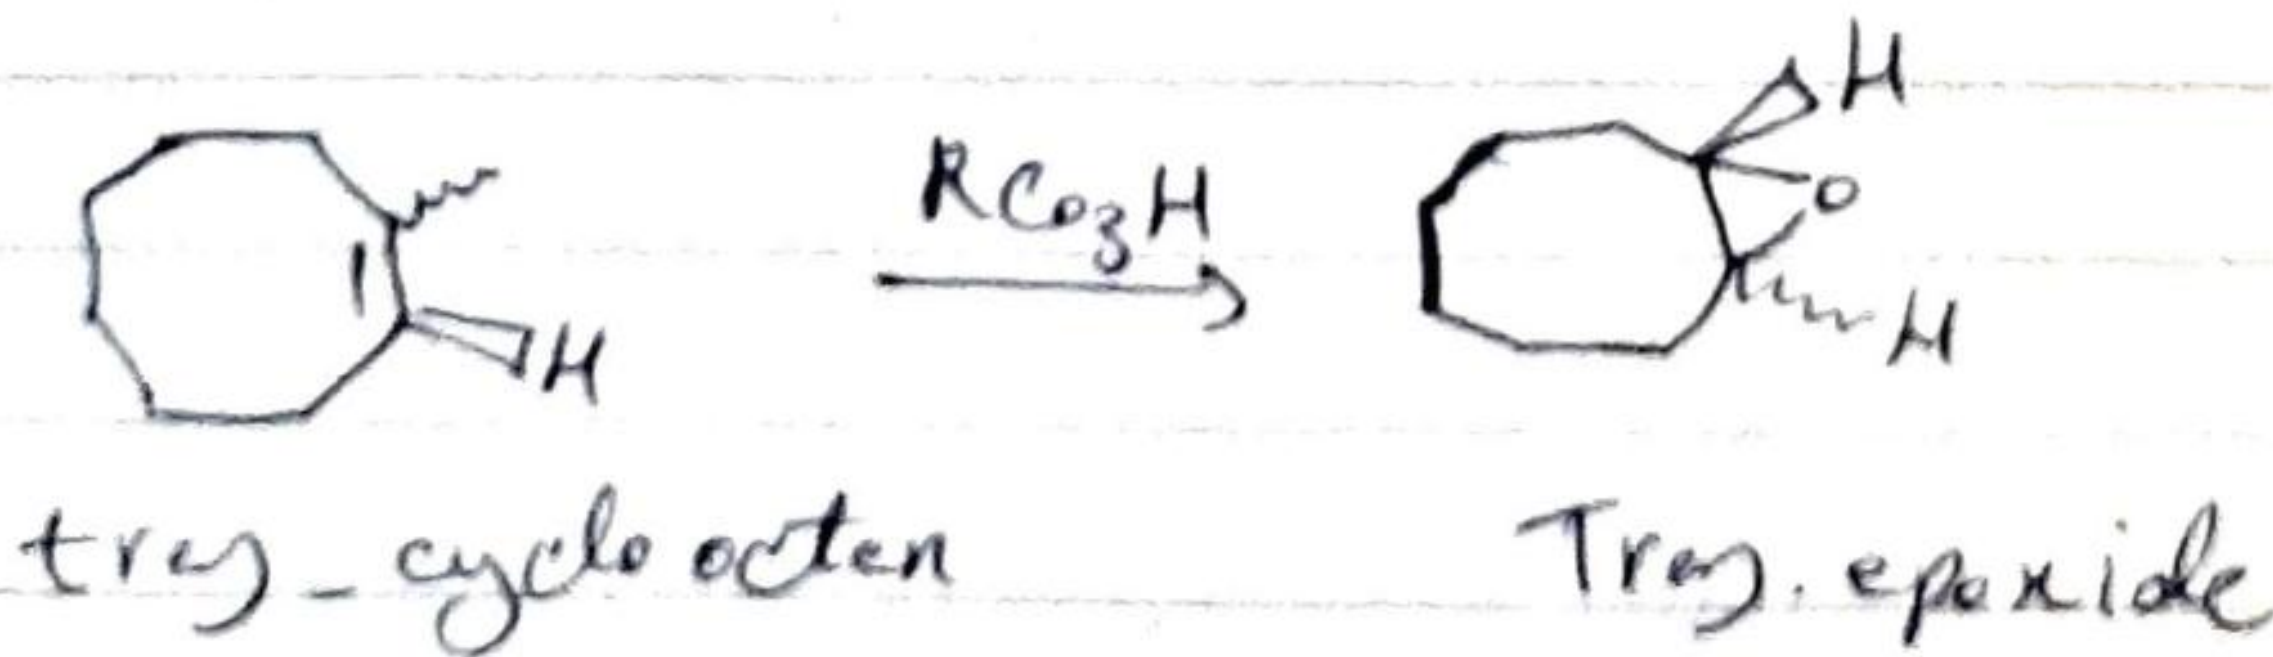 H
RCO3H
O
H
H
trans-cyclo octen
Trans. epoxide